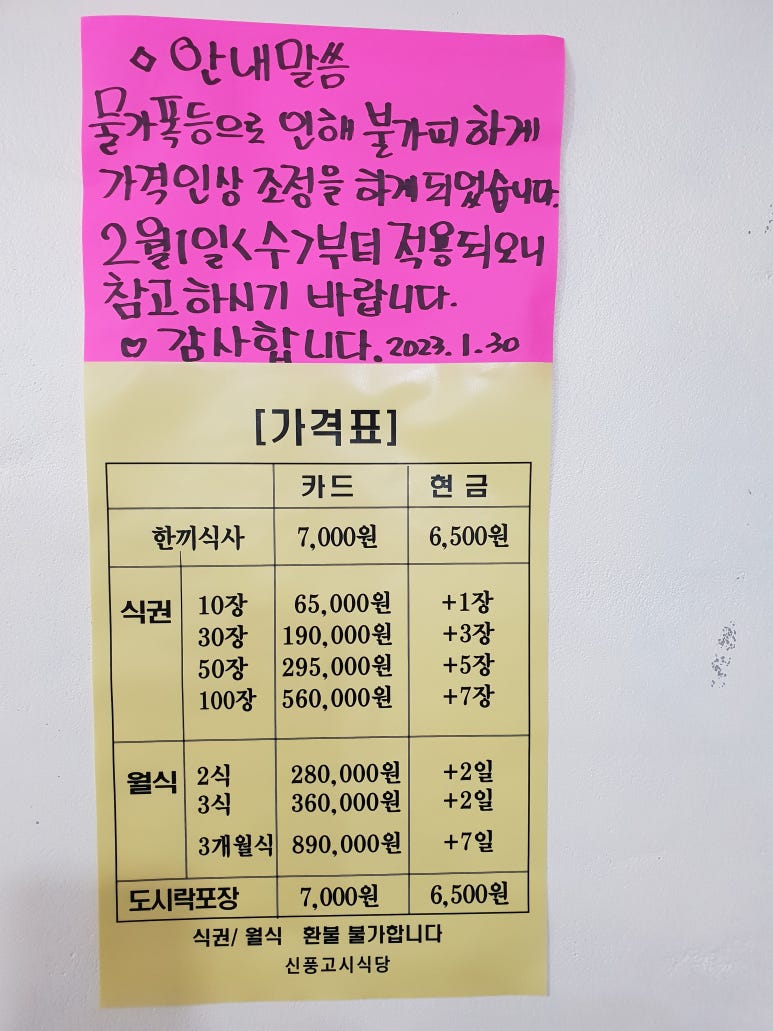 ◇ 안내말씀
물가폭등으로 인해 불가피하게
가격인상 조정을 하게되었습니다.
2월1일<수>부터 적용되오니
참고하시기 바랍니다.
♡ 감사합니다. 2023.1.30
[가격표]
카드 현금
한끼식사 7,000원 6,500원
식권 10장 65,000원 +1장
30장 190,000원 +3장
50장 295,000원 +5장
100장 560,000원 +7장
월식 2식 280,000원 +2일
3식 360,000원 +2일
3개월식 890,000원 +7일
도시락포장 7,000원 6,500원
식권/ 월식 환불 불가합니다
신풍고시식당